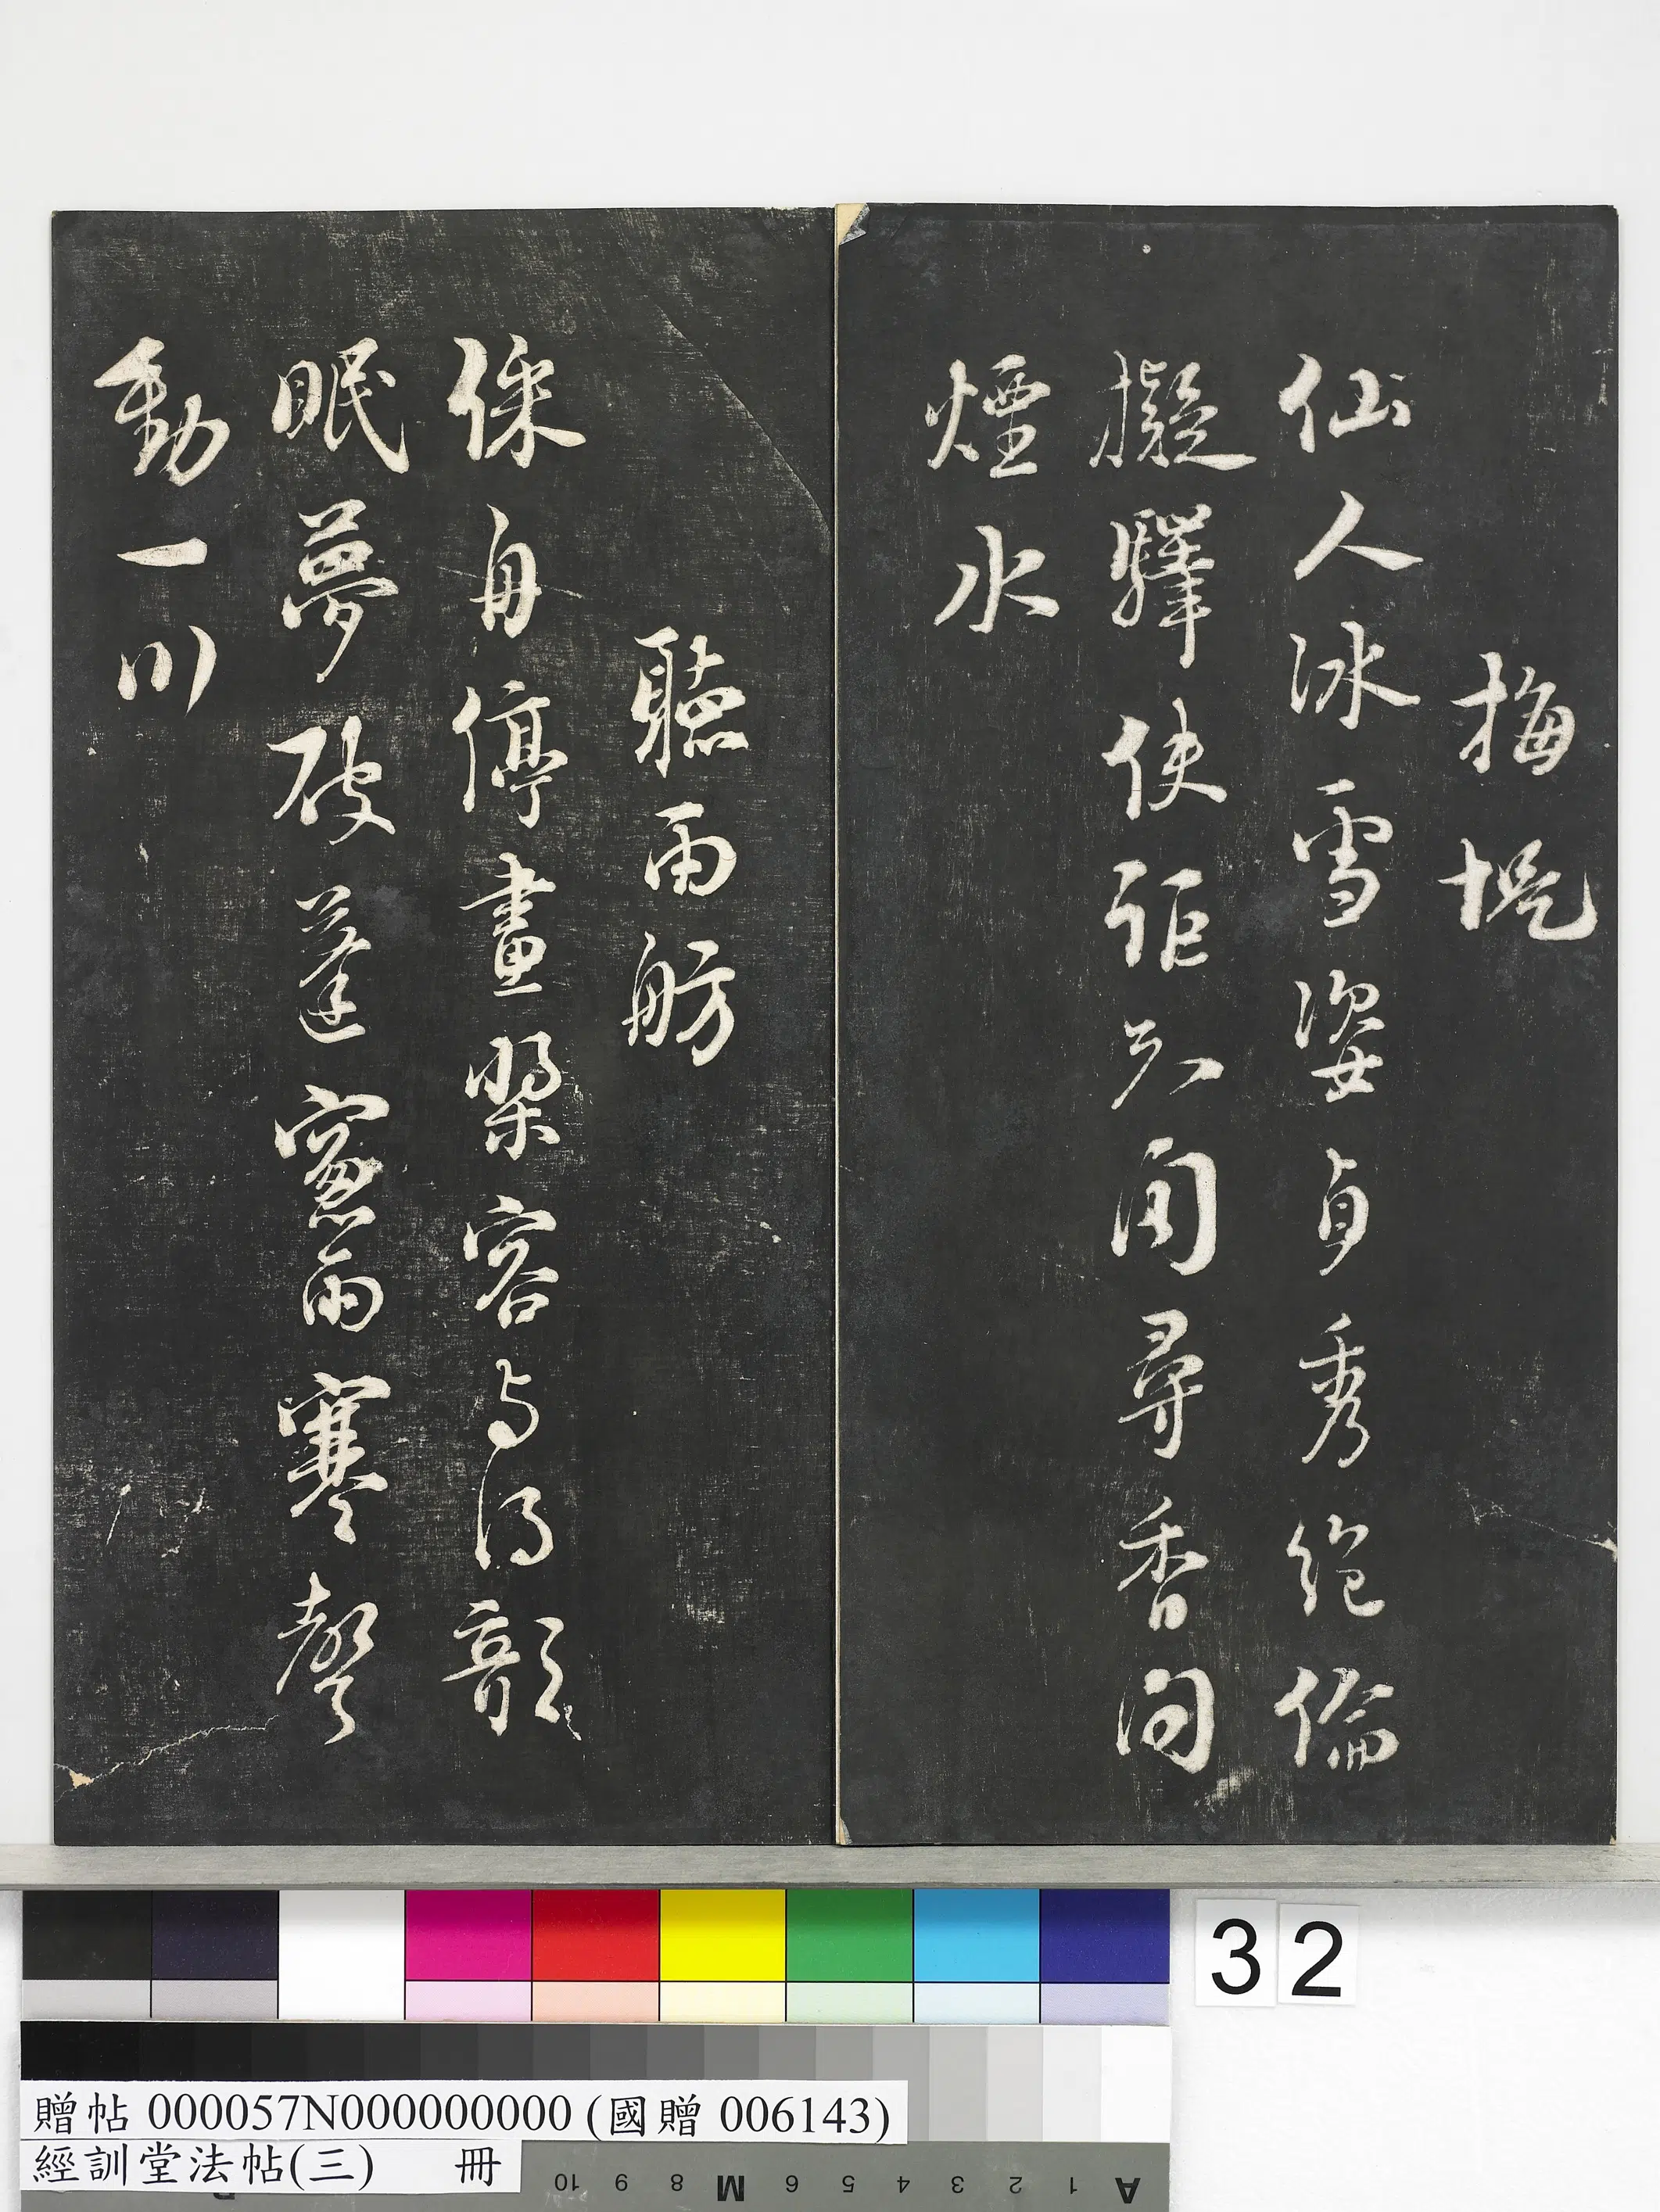 梅堤
仙人冰雪姿貞秀絕倫
擬驛使詎知聞尋香問
煙水
聽雨舫
倸舟停畫槳容與得欹
眠夢破蓬窻雨寒聲
動一川
32
贈帖 000057N000000000 (國贈 006143)
經訓堂法帖(三) 冊
A 1 2 3 4 5 6 M 8 9 10